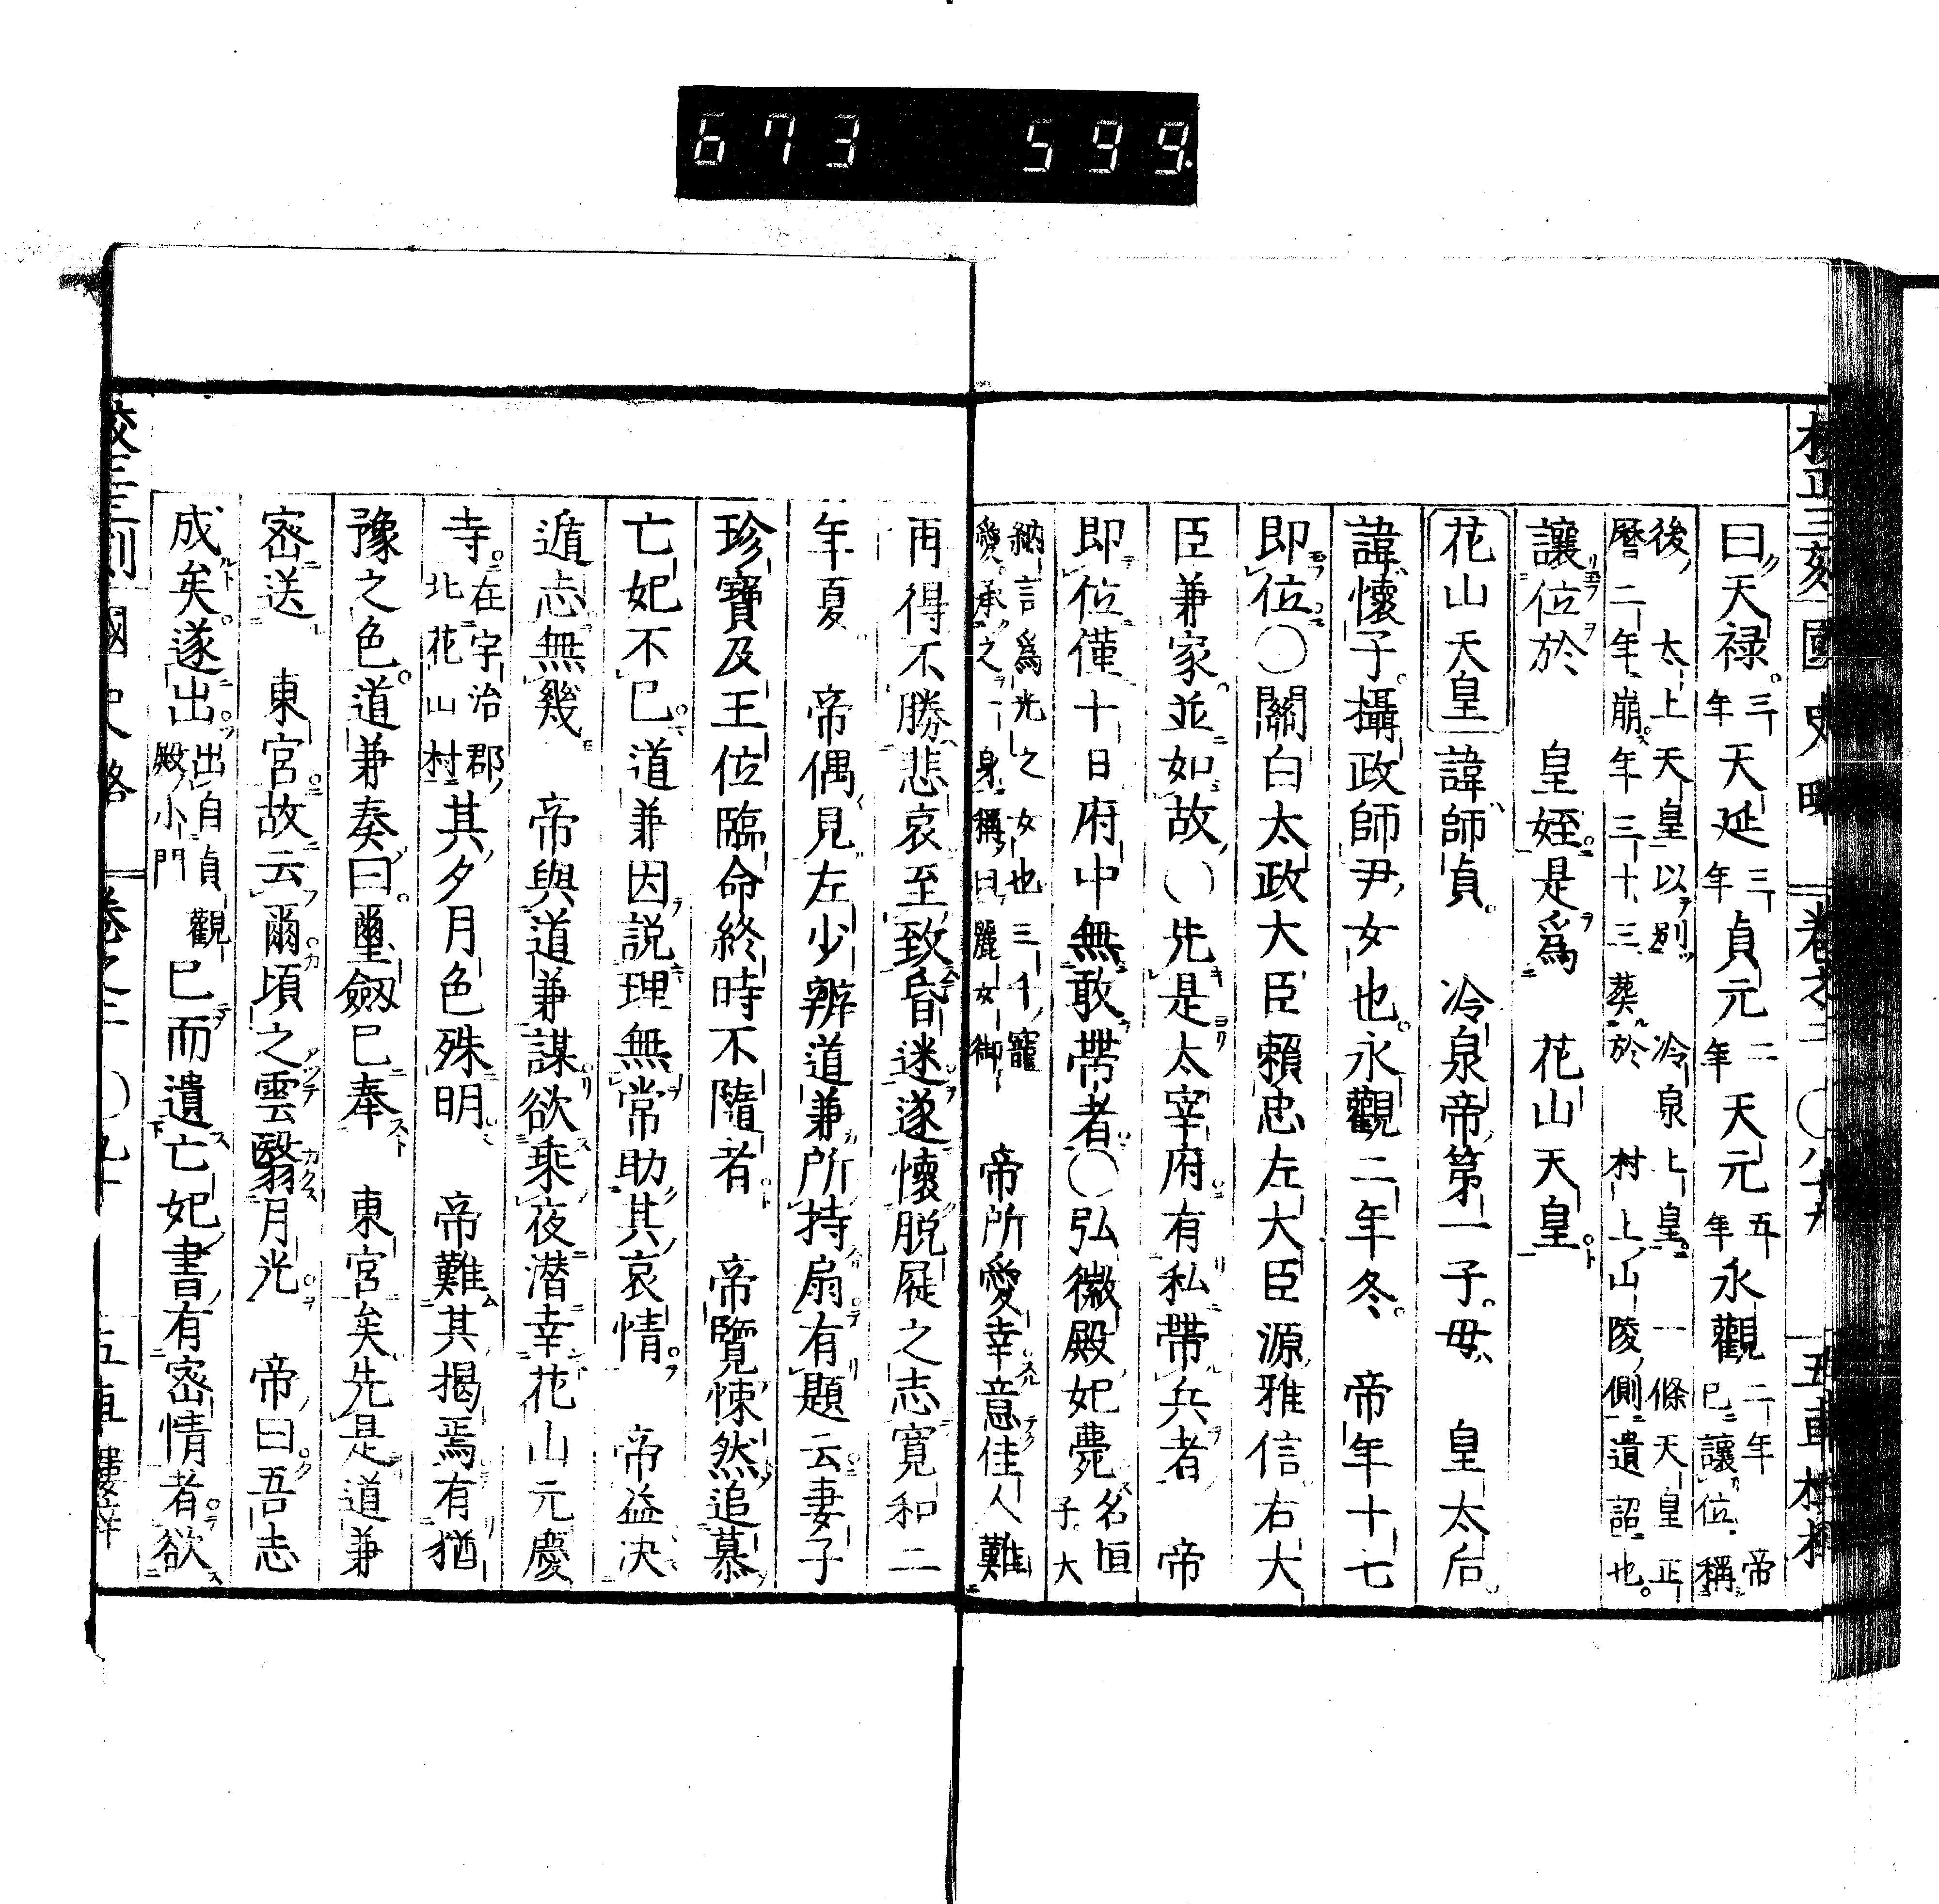 673 599
校正三刻國史略 卷之二 〇八十九 五車樓梓
曰天祿三年天延三年貞元二年天元五年永觀二年帝已讓位稱
後太上天皇以別冷泉上皇一條天皇正
曆二年崩年三十三葬於村上山陵側遺詔也
讓位於 皇姪是爲 花山天皇
花山天皇 諱師貞 冷泉帝第一子母 皇太后
諱懷子攝政師尹女也永觀二年冬 帝年十七
即位〇關白太政大臣賴忠左大臣源雅信右大
臣兼家並如故〇先是太宰府有私帶兵者 帝
即位僅十日府中無敢帶者〇弘徽殿妃薨名恒子大
納言爲光之女也三千寵
愛承之一身稱曰麗女御 帝所愛幸意佳人難
再得不勝悲哀至致昏迷遂懷脱屣之志寬和二
年夏 帝偶見左少辨道兼所持扇有題云妻子
珍寶及王位臨命終時不隨者 帝覽悚然追慕
亡妃不已道兼因説理無常助其哀情 帝益決
遁志無幾 帝與道兼謀欲乘夜潛幸花山元慶
寺在宇治郡北花山村其夕月色殊明 帝難其揭焉有猶
豫之色道兼奏曰璽劔已奉 東宮矣先是道兼
密送 東宮故云爾頃之雲翳月光 帝曰吾志
成矣遂出出自貞觀殿小門已而遺亡妃書有密情者欲
校正三刻國史略 卷之二 〇九十 五車樓梓